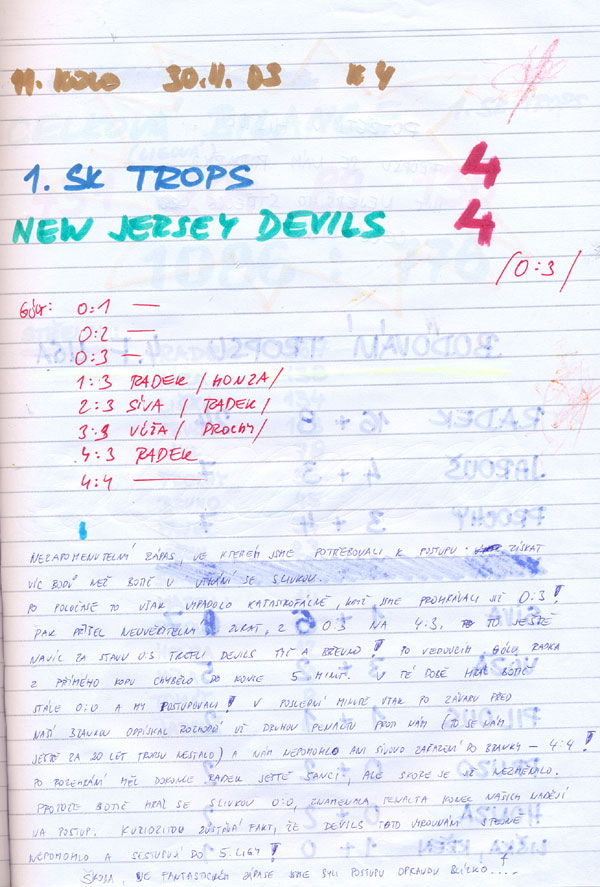 11. KOLO 30.11.03 K4
1. SK TROPS 4
NEW JERSEY DEVILS 4
/0:3/
GÓLY: 0:1 —
0:2 —
0:3 —
1:3 RADEK /HONZA/
2:3 SÍVA /RADEK/
3:3 VÍŤA /PROCHY/
4:3 RADEK
4:4 —
NEZAPOMENUTELNÝ ZÁPAS, VE KTERÉM JSME POTŘEBOVALI K POSTUPU ZÍSKAT
VÍC BODŮ NEŽ BOTIČ V UTKÁNÍ SE SLIVKOU.
PO POLOČASE TO VŠAK VYPADALO KATASTROFÁLNĚ, KDYŽ JSME PROHRÁVALI JIŽ 0:3!
PAK PŘIŠEL NEUVĚŘITELNÝ ZVRAT, Z 0:3 NA 4:3, TO JEŠTĚ
NAVÍC ZA STAVU 0:3 TREFILI DEVILS TYČ A BŘEVNO! PO VEDOUCÍM GÓLU RADKA
Z PŘÍMÉHO KOPU CHYBĚLO DO KONCE 5 MINUT. V TÉ DOBĚ HRÁL BOTIČ
STÁLE 0:0 A MY POSTUPOVALI! V POSLEDNÍ MINUTĚ VŠAK PO ZÁVARU PŘED
NAŠÍ BRANKOU ODPÍSKAL ROZHODČÍ UŽ DRUHOU PENALTU PROTI NÁM (TO SE NÁM
JEŠTĚ ZA 20 LET TROPSU NESTALO) A NÁM NEPOMOHLO ANI SÍVOVO ZAŘAZENÍ DO BRANKY – 4:4!
PO ROZEHRÁNÍ MĚL DOKONCE RADEK JEŠTĚ ŠANCI, ALE SKÓRE SE JIŽ NEZMĚNILO.
PROTOŽE BOTIČ HRÁL SE SLIVKOU 0:0, ZNAMENALA PENALTA KONEC NAŠICH NADĚJÍ
NA POSTUP. KURIOZITOU ZŮSTÁVÁ FAKT, ŽE DEVILS TOTO VYROVNÁNÍ STEJNĚ
NEPOMOHLO A SESTUPUJÍ DO 5. LIGY!
ŠKODA, FANTASTICKÉM ZÁPASE JSME BYLI POSTUPU OPRAVDU BLÍZKO....